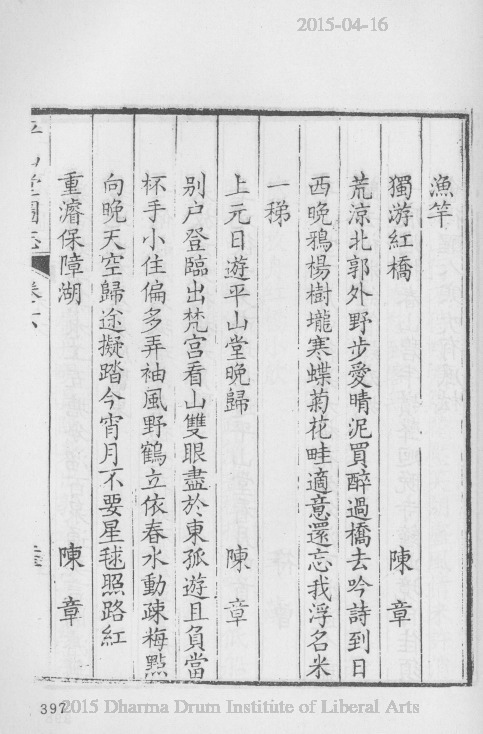 2015-04-16
漁竿
獨游紅橋 陳章
荒涼北郭外野步愛晴泥買醉過橋去吟詩到日
西晚鴉楊樹壠寒蝶菊花畦適意還忘我浮名米
一稊
上元日遊平山堂晚歸 陳章
別户登臨出梵宮看山雙眼盡於東孤遊且負當
杯手小住偏多弄袖風野鶴立依春水動疎梅㸃
向晚天空歸途擬踏今宵月不要星毬照路紅
重濬保障湖 陳章
平山堂圖志 卷六
397
2015 Dharma Drum Institute of Liberal Arts